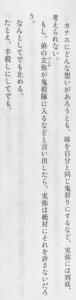 カナエにどんな想いがあろうとも、妹を自分と同じ鬼狩りにするなど、実弥には到底、
考えられない。
もし、弟の玄弥が鬼殺隊に入るなどと言い出したら、実弥は絶対にそれを許さないだろ
う。
なんとしてでも止める。
たとえ、半殺しにしてでも。